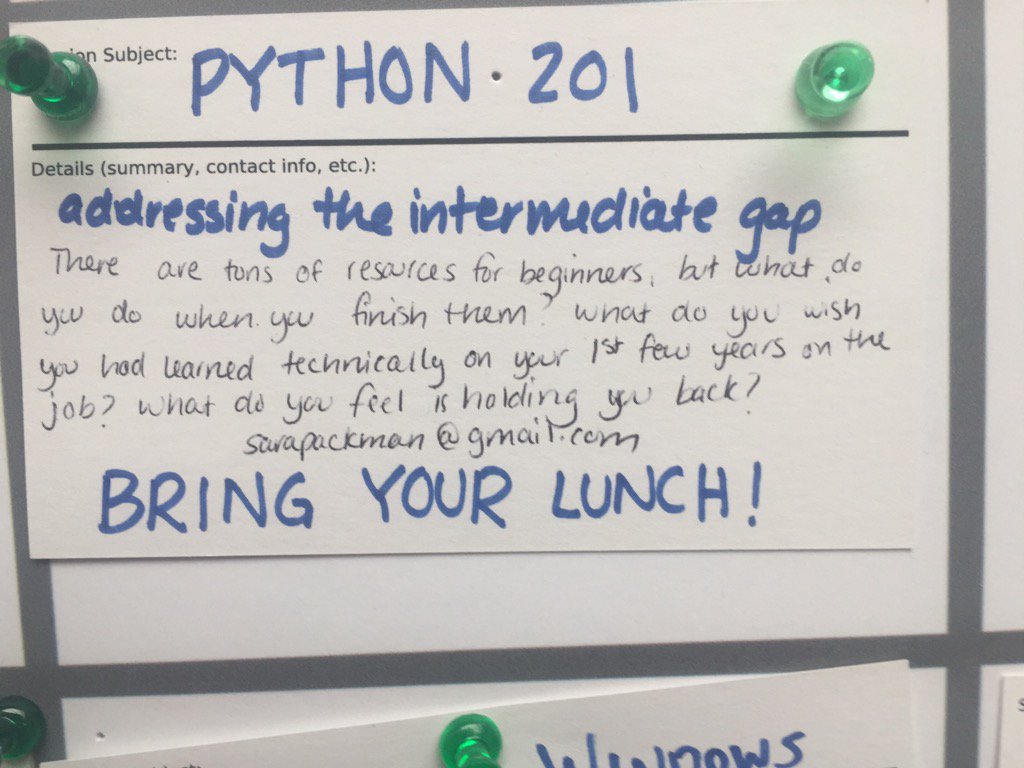 on Subject: PYTHON 201
Details (summary, contact info, etc.):
addressing the intermediate gap
There are tons of resources for beginners, but what do
you do when you finish them? What do you wish
you had learned technically on your 1st few years on the
job? What do you feel is holding you back?
sarapackman@gmail.com
BRING YOUR LUNCH!
WINDOWS